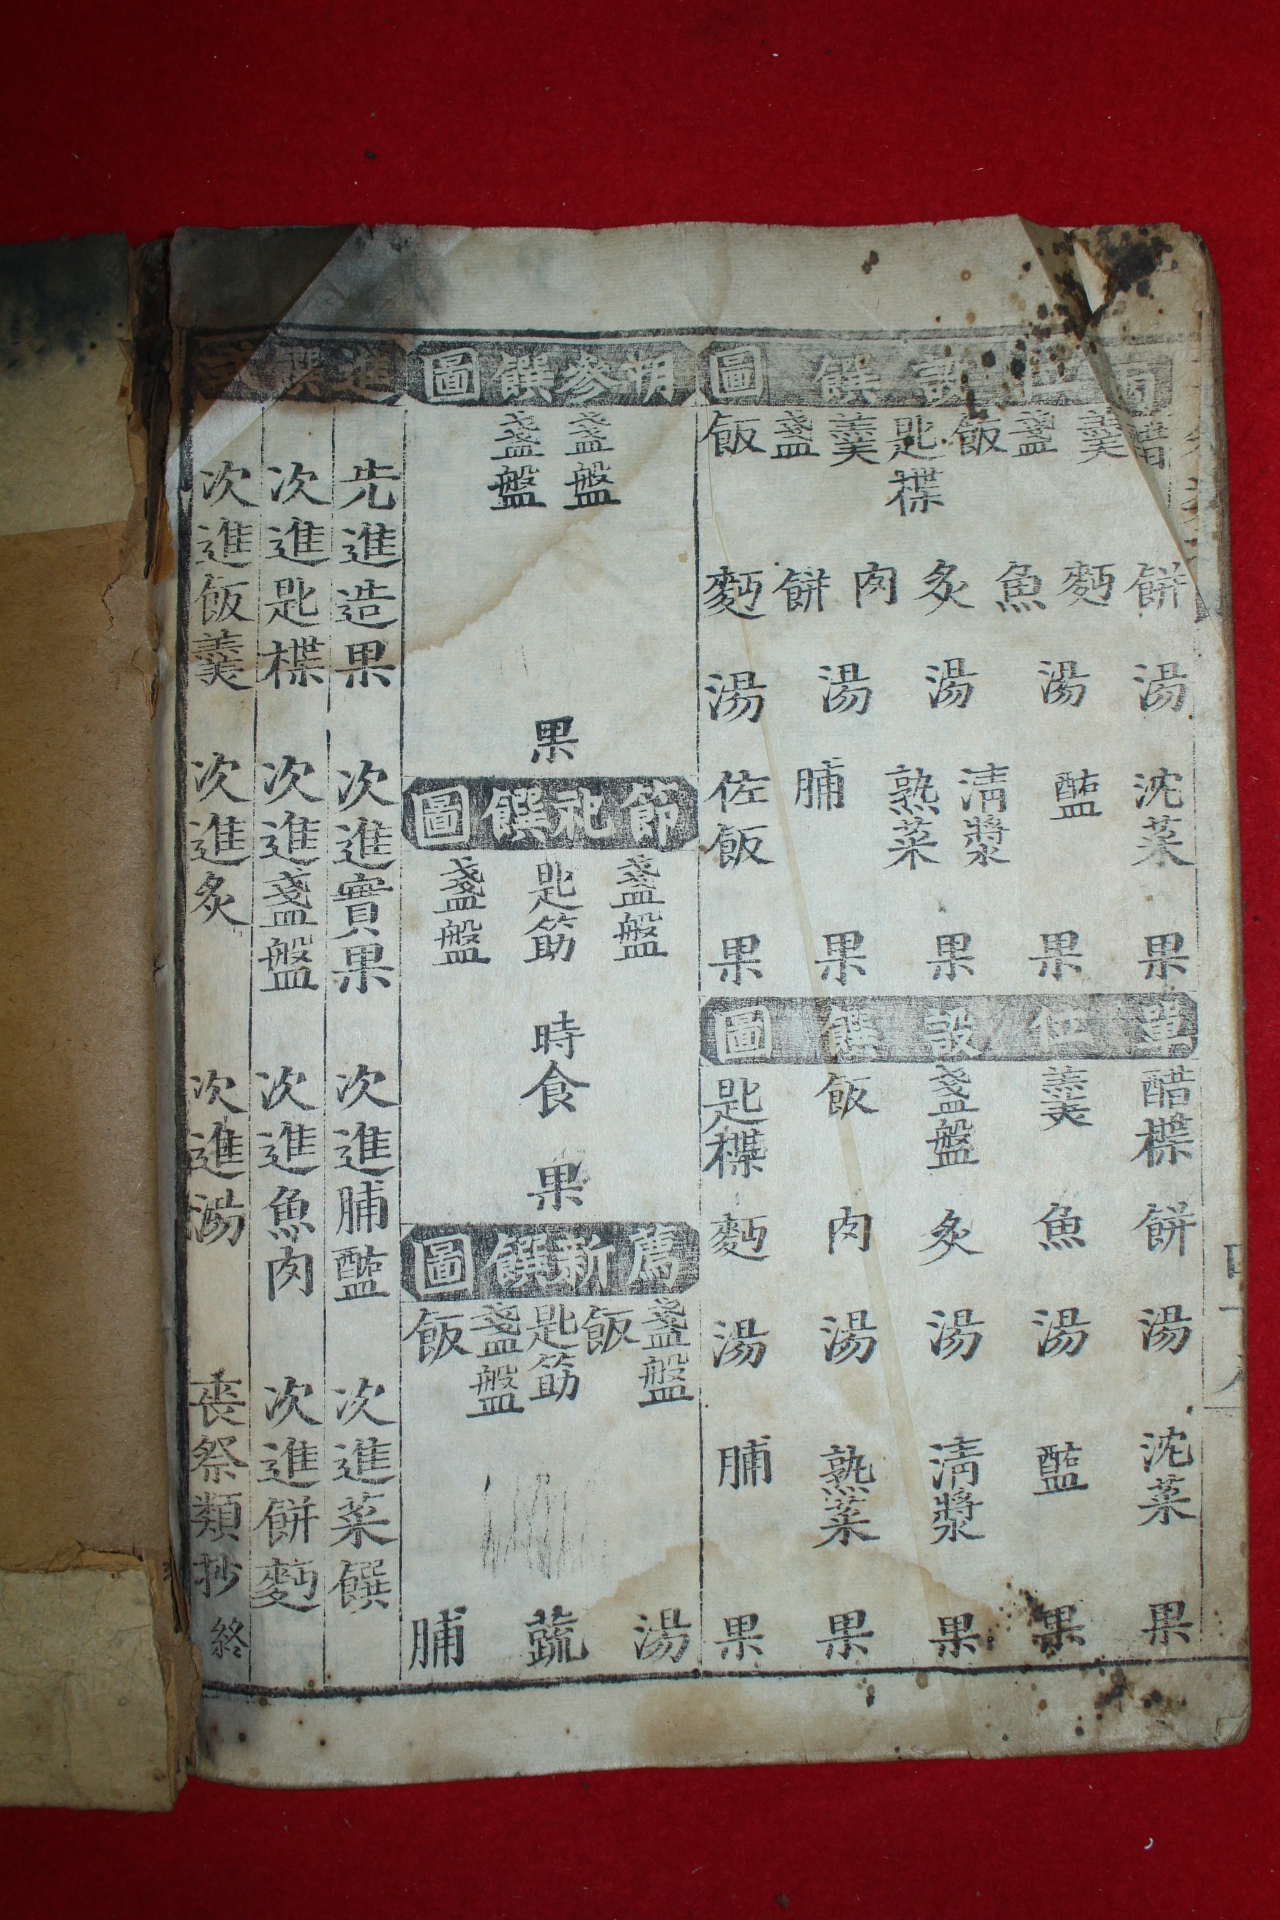 圖饌設位兩
飯盞羹匙楪飯盞羹醋
麪餠肉炙魚麪餠
湯湯湯湯湯
佐飯脯熟菜淸漿醢沈菜
果果果果果
圖饌設位單
匙楪飯盞盤羹醋楪
麪肉炙魚餠
湯湯湯湯湯
脯熟菜淸漿醢沈菜
果果果果果
圖饌參朔
盞盤盞盤
果
圖饌祀節
盞盤匙筯盞盤
時食
果
圖饌新薦
飯盞盤匙筯飯盞盤
脯蔬湯
式饌進
先進造果 次進實果 次進脯醢 次進菜饌
次進匙楪 次進盞盤 次進魚肉 次進餠麪
次進飯羹 次進炙 次進湯 喪祭類抄終